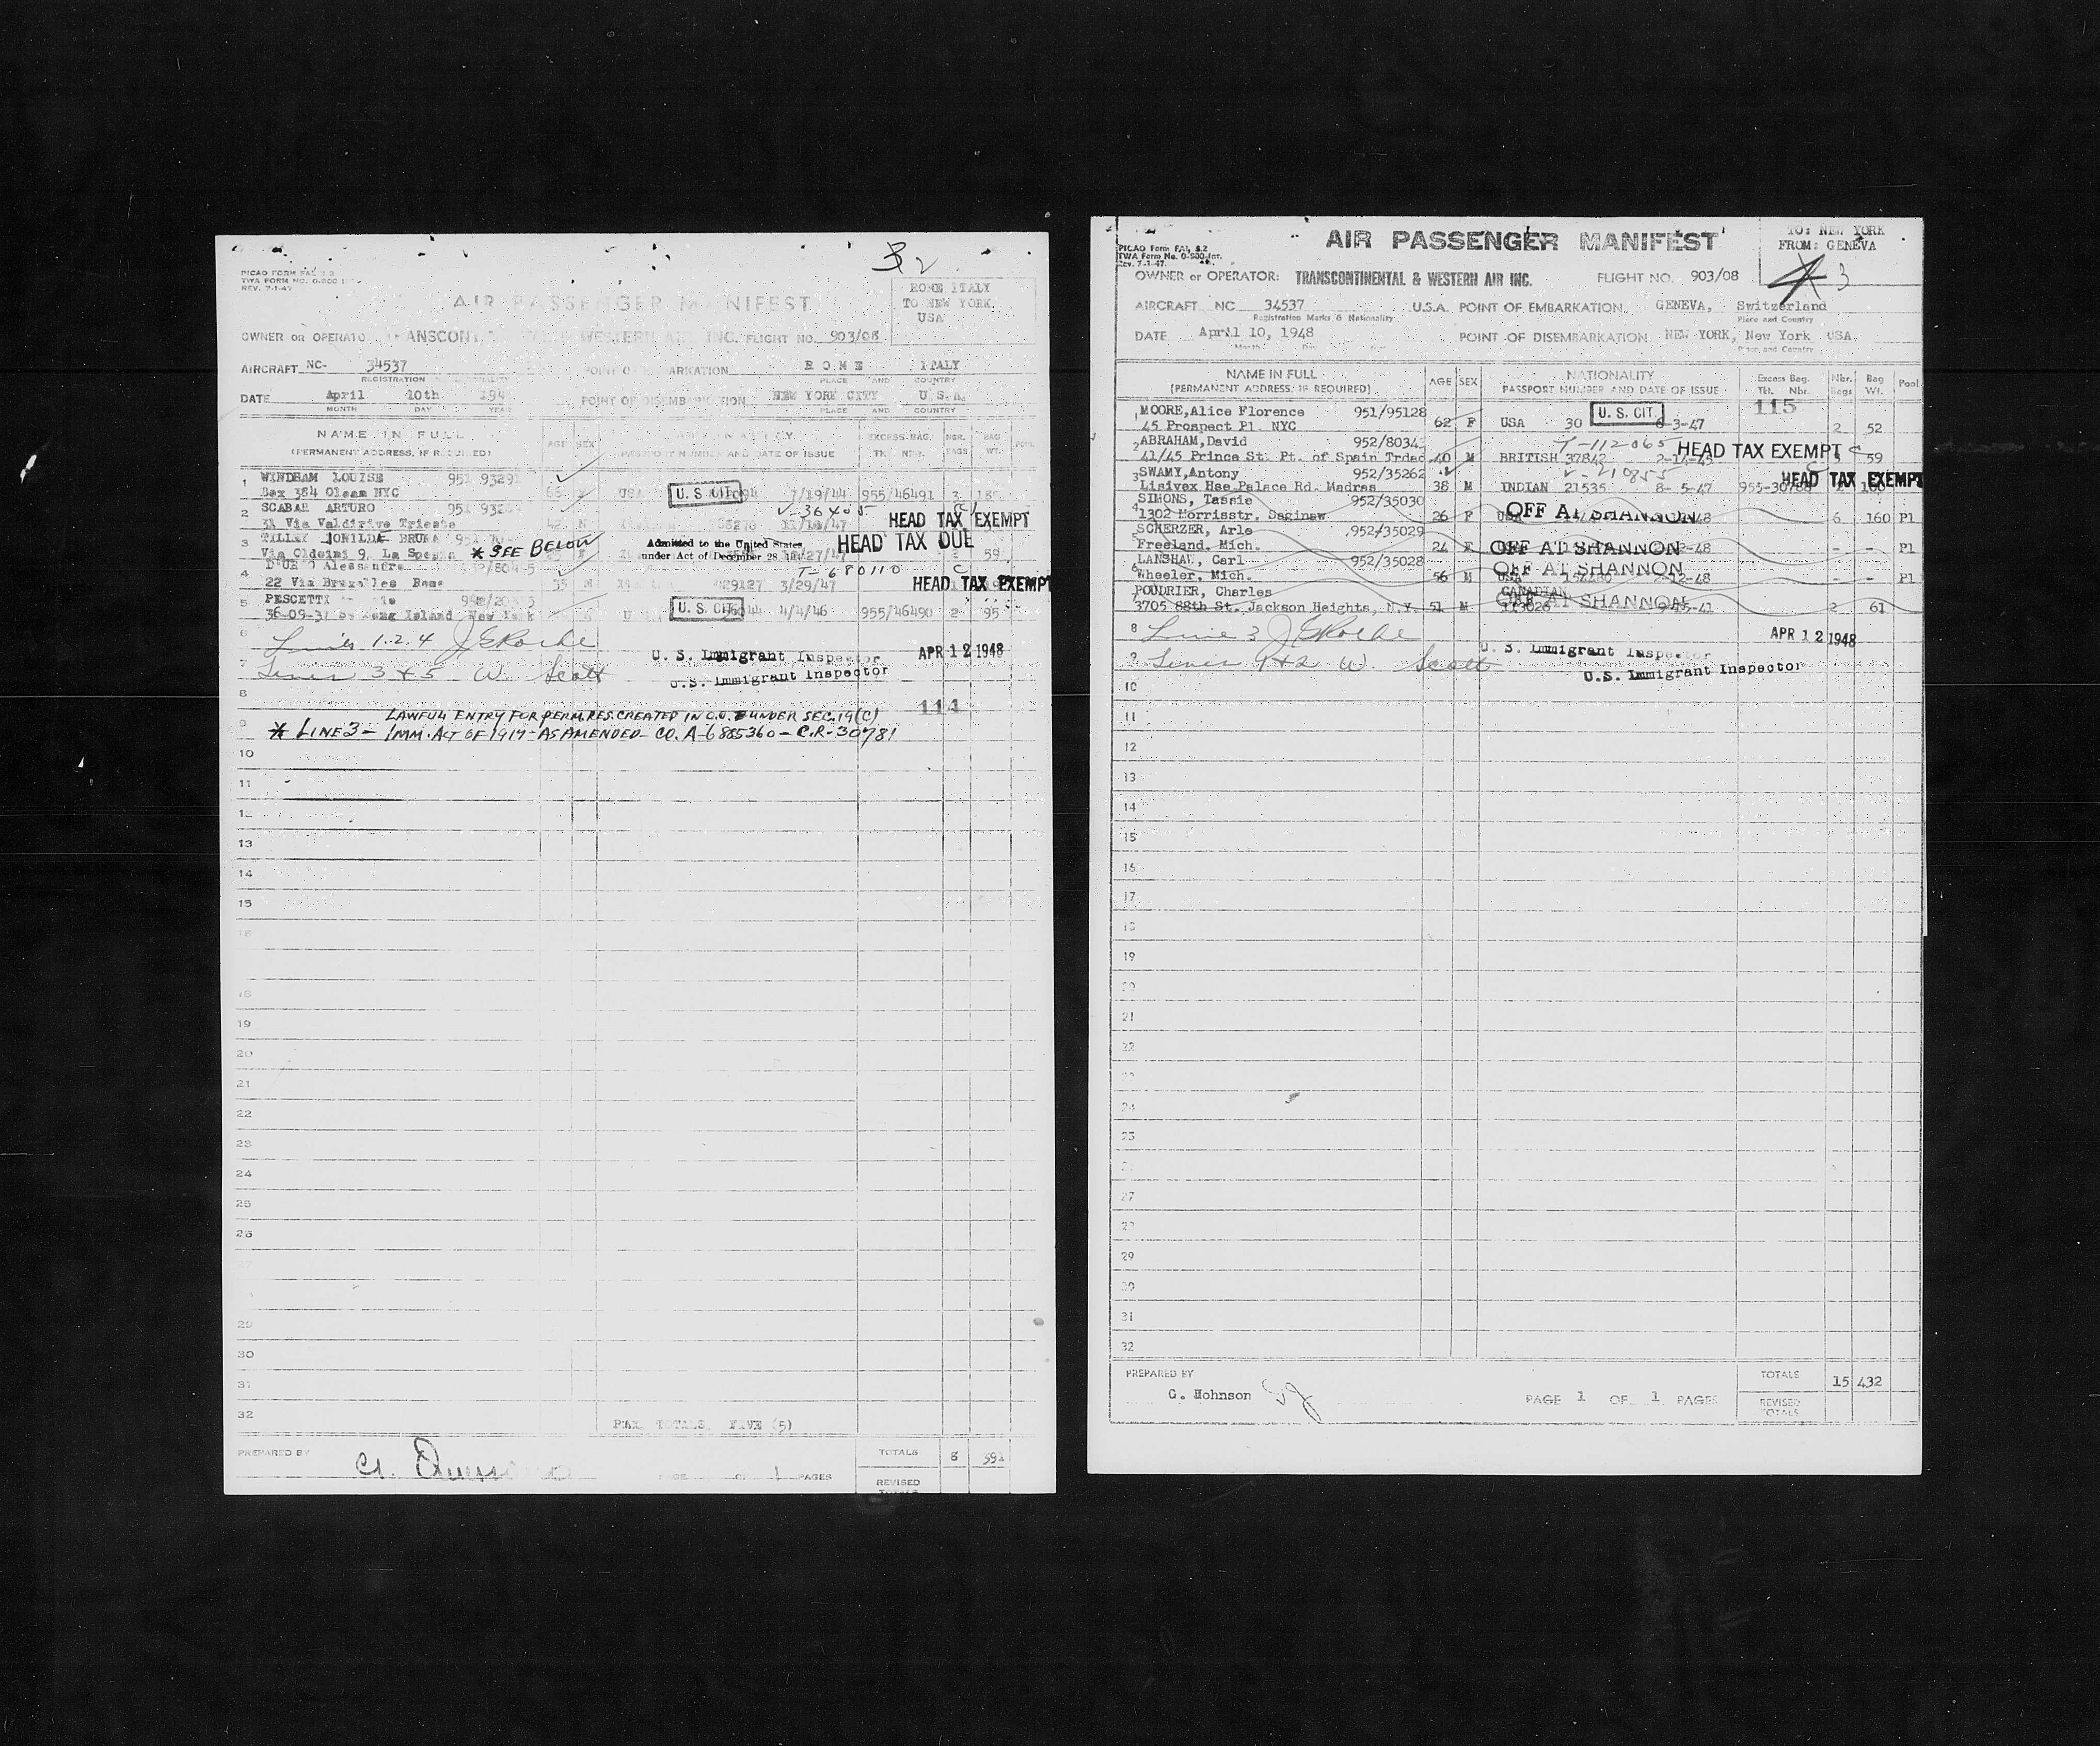 32
PICAO FORM FAL 3.2
TWA FORM NO. 0-800
REV. 7-1-47
AIR PASSENGER MANIFEST
ROME ITALY
TO NEW YORK
USA
OWNER OR OPERATO ANSCONT & WESTERN AIR INC. FLIGHT NO. 903/08
AIRCRAFT NC- 34537 POINT OF EMBARKATION ROME ITALY
REGISTRATION PLACE AND COUNTRY
DATE April 10th 194 POINT OF DISEMBARKATION NEW YORK CITY U.S.A.
MONTH DAY YEAR PLACE AND COUNTRY
NAME IN FULL AGE SEX NATIONALITY EXCESS BAG. NBR. BAG
(PERMANENT ADDRESS, IF REQUIRED) PASSPORT NUMBER AND DATE OF ISSUE TKT. NBR. BAGS WT. POOL
1 WINDHAM LOUISE 951 93291
Box 384 Olean NYC 66 USA U. S CIT. 7/19/44 955/46491 3 185
2 SCABAR ARTURO 951 V-36405 (C)
31 Via Valdirivo Trieste 42 M HEAD TAX EXEMPT
3 TILLEY JONILDE BRUNA Admitted to the United States HEAD TAX DUE
Via Oldoini 9, La Spezia * SEE BELOW under Act of December 28, 27/47 2 59
4 Alessandro T-680110 C
22 Via Bruxelles Rome 35 M 29127 3/29/47 HEAD TAX EXEMPT
5 PESCETTI
36-09-31 Long Island New York U. S. CIT. 4/4/46 955/46490 2 95
6 Lines 1.2.4 J E Roche U. S. Immigrant Inspector APR 12 1948
7 Lines 3 & 5 W. Scott U.S. Immigrant Inspector
8
111
LAWFUL ENTRY FOR PERM. RES. CREATED IN C.O. UNDER SEC. 19(C)
9 * LINE 3 - IMM. ACT OF 1917 - AS AMENDED - CO. A-6885360 - C.R-30781
10
11
12
13
14
15
18
19
20
21
22
23
24
25
26
29
30
31
32 PAX TOTALS, FIVE (5)
PREPARED BY PAGE OF 1 PAGES TOTALS 8 391
REVISED
TOTALS
PICAO Form FAL 3.2
TWA Form No. 0-800-Int.
Rev. 7-1-47.
AIR PASSENGER MANIFEST
TO: NEW YORK
FROM: GENEVA
3
OWNER or OPERATOR: TRANSCONTINENTAL & WESTERN AIR INC. FLIGHT NO. 903/08
AIRCRAFT NC 34537 U.S.A. POINT OF EMBARKATION GENEVA, Switzerland
Registration Marks & Nationality Place and Country
DATE April 10, 1948 POINT OF DISEMBARKATION NEW YORK, New York USA
Month Day Place and Country
NAME IN FULL AGE SEX NATIONALITY Excess Bag. Nbr. Bag Pool
(PERMANENT ADDRESS, IF REQUIRED) PASSPORT NUMBER AND DATE OF ISSUE Tkt. Nbr. Bags Wt.
115
1 MOORE, Alice Florence 951/95128
45 Prospect Pl. NYC 62 F USA 30 U. S. CIT. 6-3-47 2 52
2 ABRAHAM, David 952/8034 T-112065 HEAD TAX EXEMPT C
41/45 Prince St. Pt. of Spain Trdad 40 M BRITISH 37842 59
3 SWAMY, Antony 952/35262 V-210855 C HEAD TAX EXEMPT
Lisivex Hse Palace Rd. Madras 38 M INDIAN 21535 8- 5-47
4 SIMONS, Tassie 952/35030
1302 Morrisstr. Saginaw 26 F USA OFF AT SHANNON 48 6 160 Pl
5 SCHERZER, Arle 952/35029
Freeland. Mich. 24 F OFF AT SHANNON -48 - - Pl
6 LANSHAW, Carl 952/35028 OFF AT SHANNON
Wheeler, Mich. 56 M USA -12-48 - - Pl
7 POUDRIER, Charles CANADIAN OFF AT SHANNON
3705 88th St. Jackson Heights, N.Y. 51 M 113026 2 61
8 Line 3 J E Roche U. S. Immigrant Inspector APR 12 1948
9 Lines 1 & 2 W. Scott U.S. Immigrant Inspector
10
11
12
13
14
15
16
17
18
19
20
21
22
24
25
27
29
30
31
32
PREPARED BY TOTALS 15 432
G. Hohnson PAGE 1 OF 1 PAGES REVISED
TOTALS